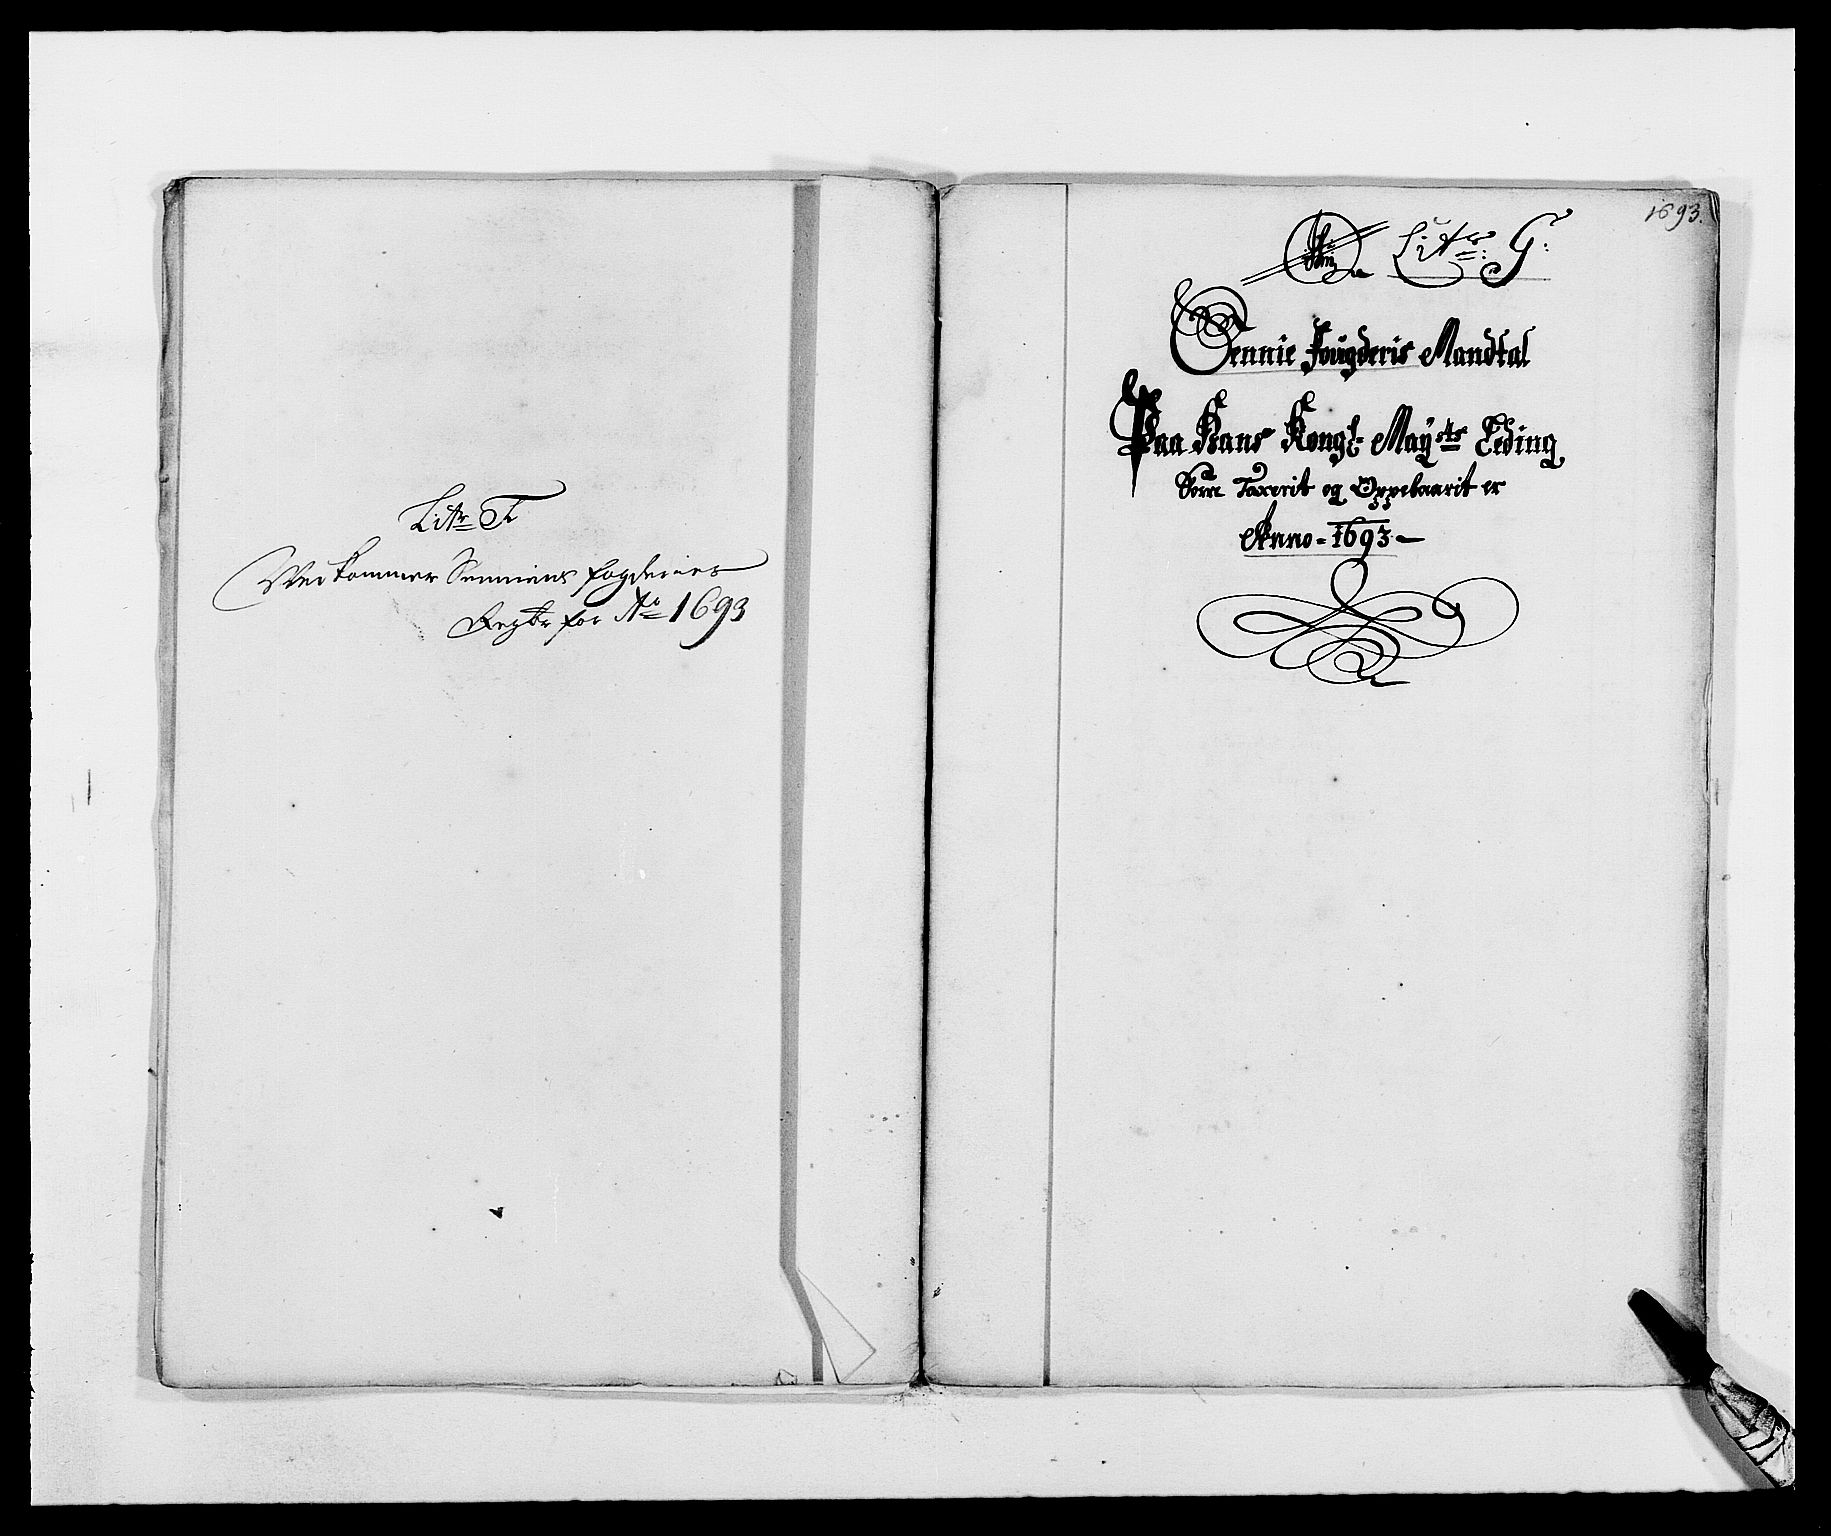 Litr F
Vedkommer Senniens fogderies
Regtr for Ao 1693
1693.
Litr: G:
Sennie Fougderis Mandtal
Paa Hans Kongl. Mayts Leding
Som Taxerit og Oppebaarit er
Anno - 1693 -